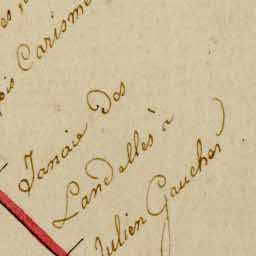 Carisme
Janaie Des
Landelles à
Julien Gaucher